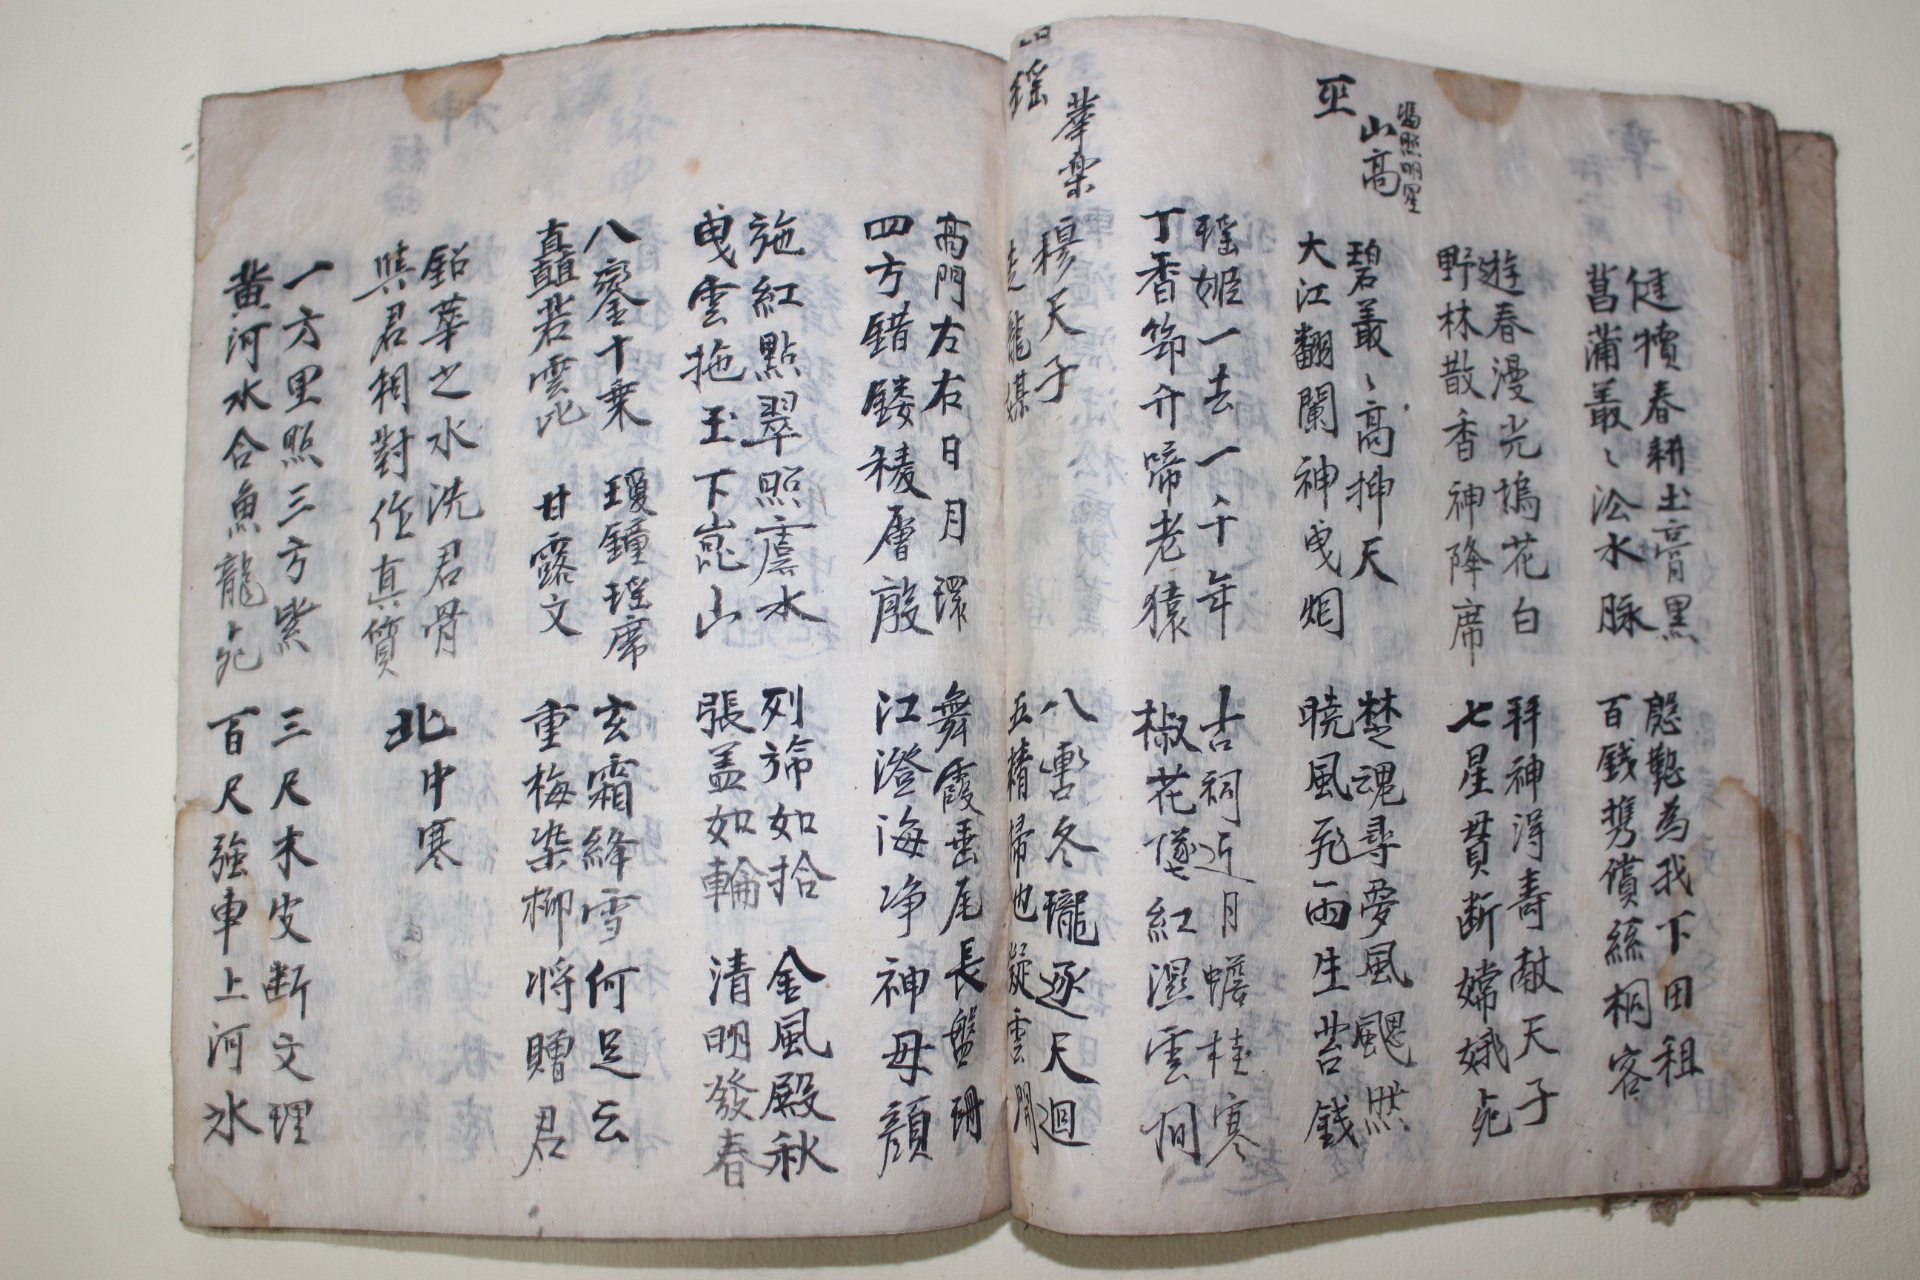 健犢春耕土膏黑
菖蒲叢〻沿水脉
慇懃為我下田租
百銭携償絲桐客
遊春漫光塢花白
野林散香神降席
拜神得壽献天子
七星貫断嫦娥死
巫山高
碧叢〻高挿天
大江翻闌神曳烟
楚魂尋夢風颸然
暁風飛雨生苔銭
瑶姫一去一千年
丁香筇竹啼老猿
古祠近月蟾桂寒
椒花墜紅濕雲間
瑶華楽
穆天子
走龍媒
八轡冬瓏逐天迴
五精掃地凝雲開
高門左右日月環
四方錯鏤稜層殷
舞霞垂尾長盤珊
江澄海净神母顔
施紅點翠照虞水
曳雲拖玉下崑山
列斾如拾
張盖如輪
金風殿秋
清明發春
八鑾十乗
矗若雲屯
瓊鐘瑶席
甘露文
玄霜絳雪何足云
重梅染柳将贈君
鉛華之水洗君骨
與君相對作真質
北中寒
一方里照三方紫
黄河水合魚龍死
三尺木皮断文理
百尺強車上河水